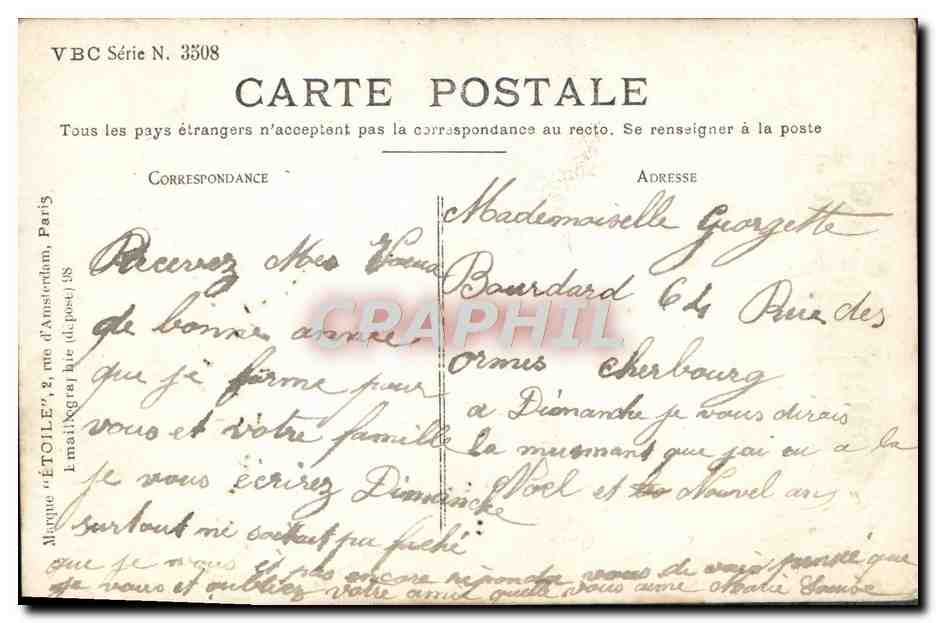 VBC Série N. 3508
CARTE POSTALE
Tous les pays étrangers n'acceptent pas la correspondance au recto. Se renseigner à la poste
CORRESPONDANCE
ADRESSE
Marque "ÉTOILE", 2, rue d'Amsterdam, Paris
Emaillographie (déposé) 98
Recevez Mes Voeux
de bonne année
que je forme pour
vous et votre famille
je vous écrirez Dimanche
surtout ne soit pa faché
que je vous et pas encore répondre vous de vais pensé que
je vous et oubliez votre amie quelle vous aime Marie
Mademoiselle Georgette
Bourdard 64 Rue des
ormes Cherbourg
a Dimanche je vous dirais
la que jai eu a la
Noël et Nouvel an
CRAPHIL